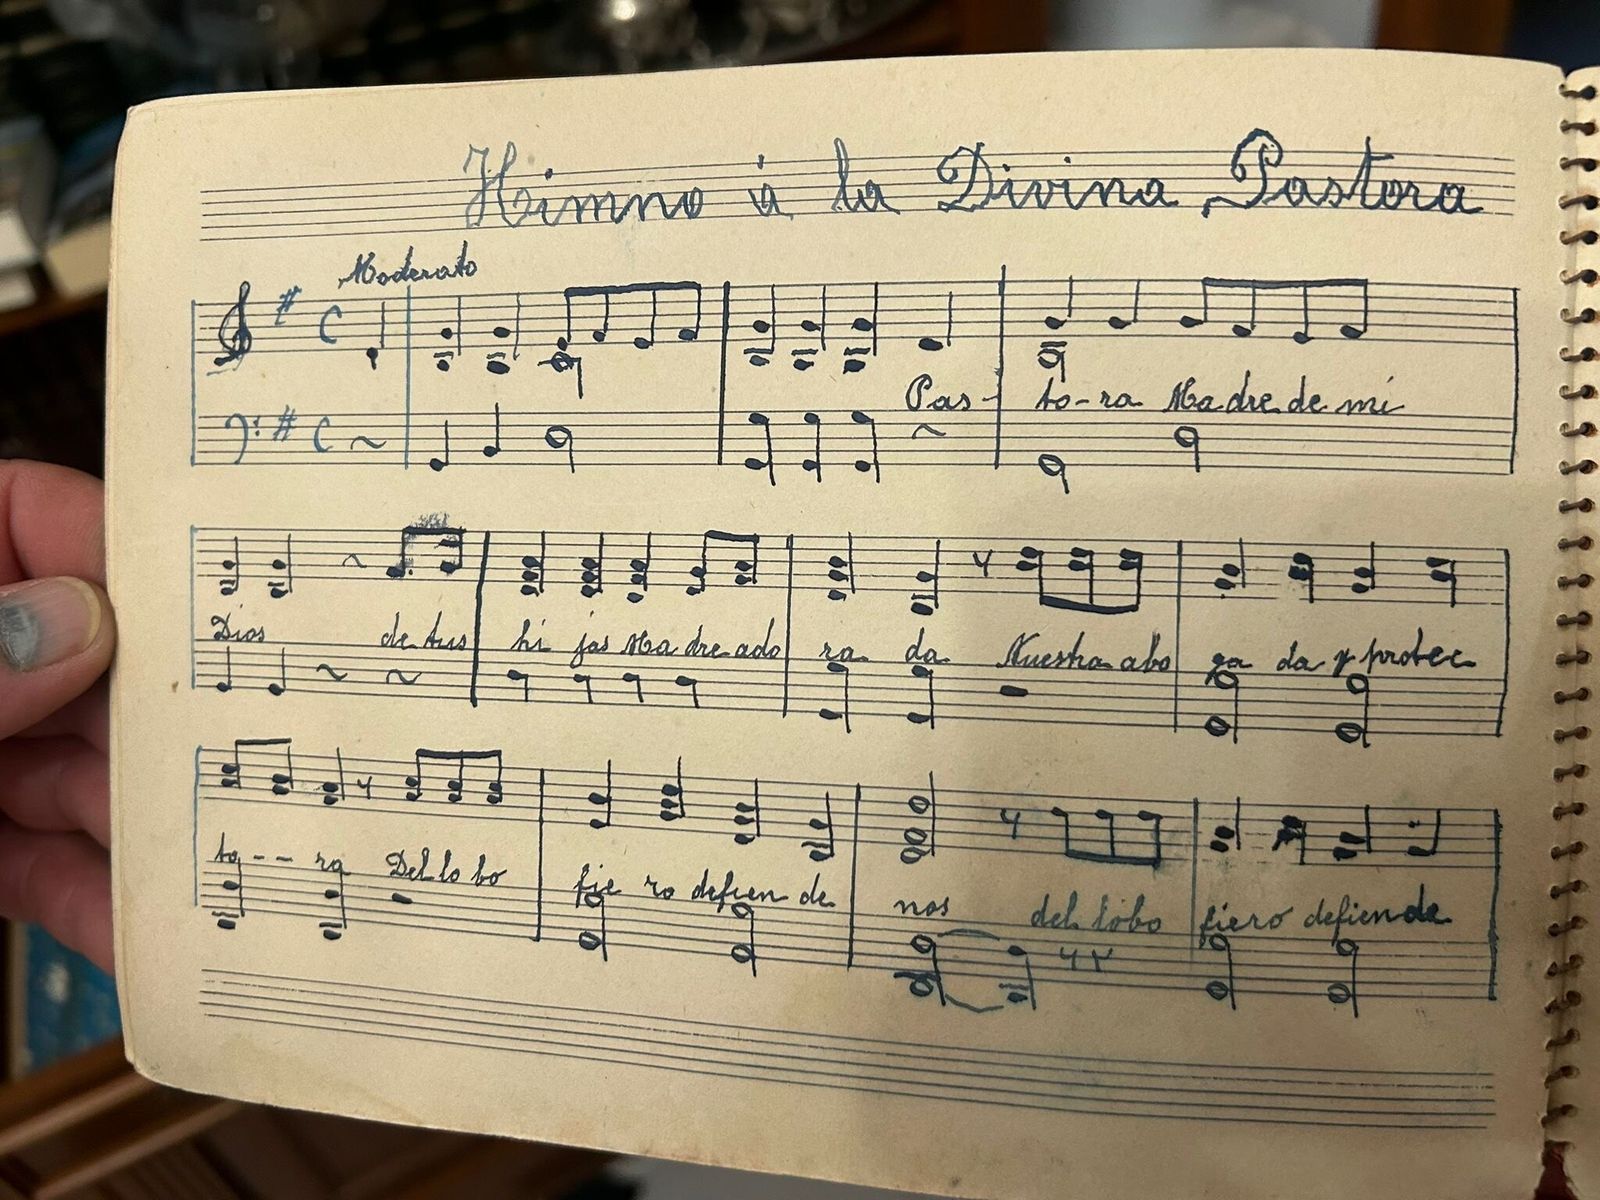 Himno á la Divina Pastora
Moderato
Pas- to-ra Madre de mi
Dios de tus hi jas Madre ado ra da Nuestra abo ga da y protec
to -- ra Del lo bo fie ro defien de nos del lobo fiero defiende